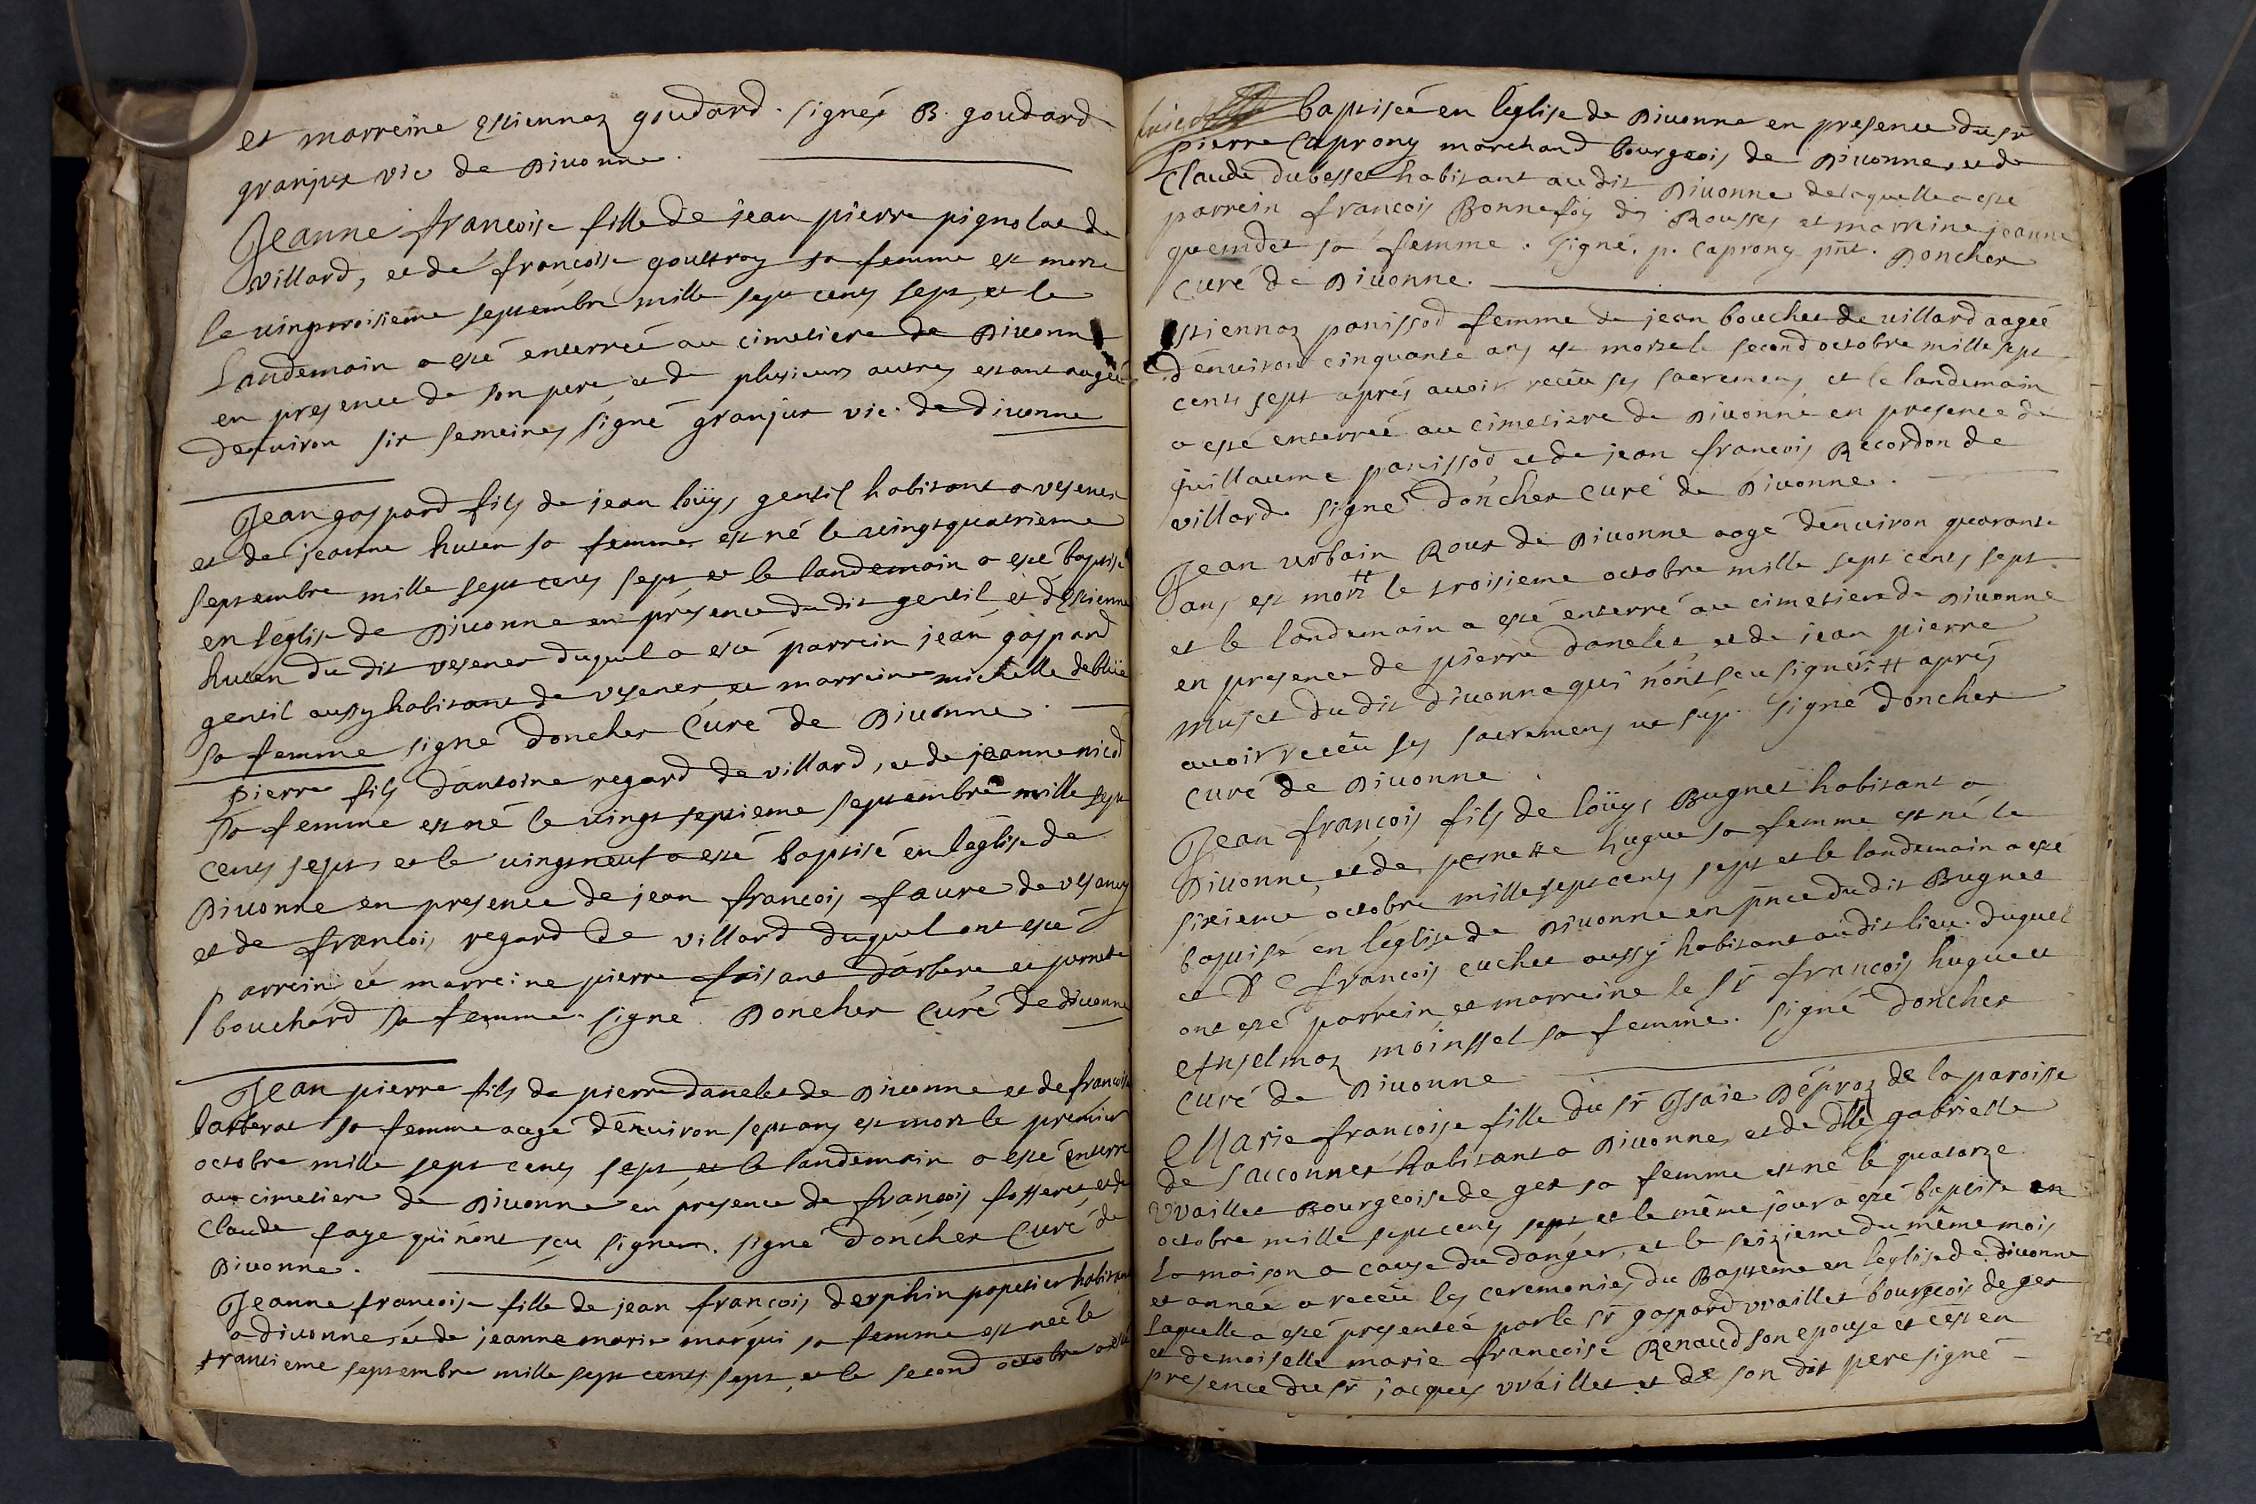 et marreine estiennaz goudard. signés B. goudard
granjux vic de Divonne.
Jeanne francoise fille de jean pierre pignolat de
villard, et de francoise goultray sa femme est morte
le vingtroisieme septembre mille sept cents sept, et le
Landemain a esté enterrée au cimetiere de Divonne
en presence de son pere et de plusieurs autres estant aagée
denviron six semeines signé granjux vic. de divonne
Jean gaspard fils de jean loüys gentil habitant a vesenex
et de jeanne huten sa femme est né le vingtquatrieme
septembre mille sept cents sept et le landemain a esté baptisé
en l'eglise de Divonne en présence du dit gentil et d'Estienne
huten du dit vesenex duquel a esté parrein jean gaspard
gentil aussy habitant de vesenex et marreine michelle
sa femme signé doncher Curé de Divonne.
pierre fils d'antoine regard de villard, et de jeanne nicod
sa femme est né le vingt septieme septembre mille sept
cents sept, et le vingtneuf a esté baptisé en l'eglise de
Divonne en presence de jean francois favre de vesancy
et de francois regard de villard duquel ont esté
parrein et marreine pierre foisant d'arbere et pernette
bouchard sa femme. signé Doncher Curé de divonne
Jean pierre fils de pierre danelet de Divonne et de francoise
barberat sa femme aagé d'environ sept ans est mort le premier
octobre mille sept cents sept, et le landemain a esté enterré
au cimetiere de Divonne en presence de francois fosseret et de
Claude faye qui n'ont sçu signer. signé doncher Curé de
Divonne.
Jeanne francoise fille de jean françois derphin papetier habitant
a divonne, et de jeanne marie marqui sa femme est née le
trantieme septembre mille sept cents sept, et le second octobre a esté
baptisée en l'eglise de Divonne en presence du sr
pierre Caprony marchand bourgeois de Divonne, et de
Claude dubesset habitant au dit Divonne de laquelle a esté
parrein francois Bonnefoy des Rousses et marreine jeanne
quemdet sa femme. signé. p. Caprony pnt. Doncher
curé de Divonne.
Estiennaz panissod femme de jean bouchet de villard aagée
d'environ cinquante ans est morte le second octobre mille sept
cents sept aprés avoir receu ses sacremens et le landemain
a esté enterrée au cimetiere de Divonne en presence de
guillaume panissod et de jean francois Recordon de
villard. signé doncher curé de Divonne.
Jean urbain Roux de Divonne aagé d'environ quarante
ans est mort # le troisieme octobre mille sept cents sept
et le landemain a esté enterré au cimetiere de Divonne
en presence de pierre danelet, et de jean pierre
muset du dit divonne qui n'ont sceu signer. # aprés
avoir receu ses sacremens ut sup. signé doncher
Curé de Divonne
Jean françois fils de loüys Bugnet habitant a
Divonne, et de pernette hugue sa femme est né le
sixieme octobre mille sept cents sept et le landemain a esté
baptisé en l'eglise de Divonne en pnce du dit Bugnet
et de francois cuchet aussy habitant au dit lieu. duquel
ont esté parrein, et marreine le sr francois hugue et
Anselmaz moinssel sa femme. signé doncher
curé de Divonne
Marie francoise fille du sr Isaie Dépraz de la paroisse
de Sacconnex habitant a Divonne, et de dlle gabrielle
vvaillet Bourgeoise de gex sa femme est né le quatorze
octobre mille sept cents sept et le même jour a esté baptisé en
la maison a cause du danger, et le seizieme du même mois
et année a receu les ceremonies du Bapteme en l'eglise de divonne
laquelle a esté presentée par le sr gaspard vvaillet bourgeois de gex
et demoiselle marie françoise Renaud son epouse et c'est en
presence du sr jacques vvaillet et de son dit pere signé